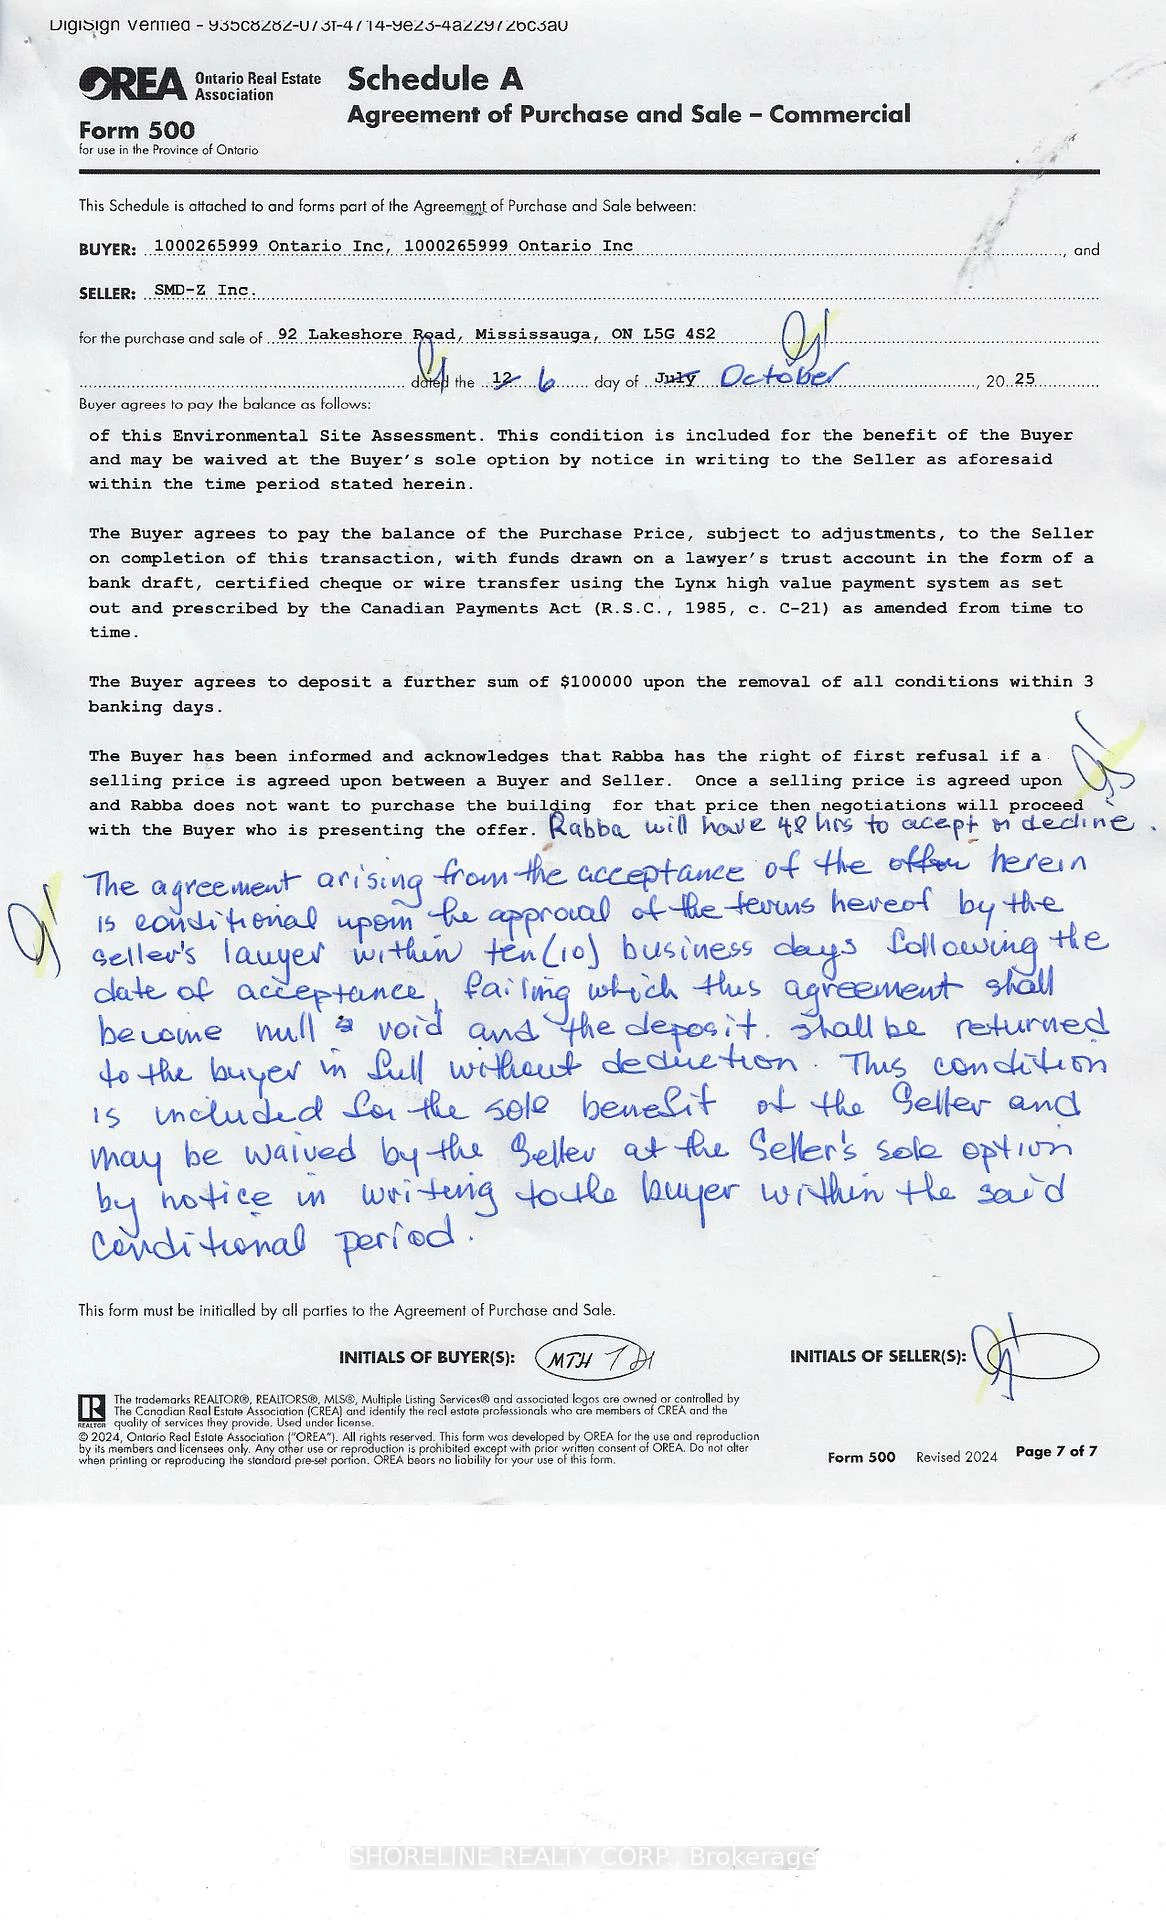 DigiSign Verified - 935c8282-073f-4714-9e23-4a229726c3a0
OREA Ontario Real Estate Association
Schedule A
Agreement of Purchase and Sale – Commercial
Form 500
for use in the Province of Ontario
This Schedule is attached to and forms part of the Agreement of Purchase and Sale between:
BUYER: 1000265999 Ontario Inc, 1000265999 Ontario Inc, and
SELLER: SMD-Z Inc.
for the purchase and sale of 92 Lakeshore Road, Mississauga, ON L5G 4S2
dated the 12 6 day of July October, 20 25
Buyer agrees to pay the balance as follows:
of this Environmental Site Assessment. This condition is included for the benefit of the Buyer
and may be waived at the Buyer's sole option by notice in writing to the Seller as aforesaid
within the time period stated herein.
The Buyer agrees to pay the balance of the Purchase Price, subject to adjustments, to the Seller
on completion of this transaction, with funds drawn on a lawyer's trust account in the form of a
bank draft, certified cheque or wire transfer using the Lynx high value payment system as set
out and prescribed by the Canadian Payments Act (R.S.C., 1985, c. C-21) as amended from time to
time.
The Buyer agrees to deposit a further sum of $100000 upon the removal of all conditions within 3
banking days.
The Buyer has been informed and acknowledges that Rabba has the right of first refusal if a
selling price is agreed upon between a Buyer and Seller. Once a selling price is agreed upon
and Rabba does not want to purchase the building for that price then negotiations will proceed
with the Buyer who is presenting the offer. Rabba will have 48 hrs to acept or decline.
The agreement arising from the acceptance of the offer herein
is conditional upon the approval of the terms hereof by the
seller's lawyer within ten (10) business days following the
date of acceptance, failing which this agreement shall
become null & void and the deposit. shall be returned
to the buyer in full without deduction. This condition
is included for the sole benefit of the Seller and
may be waived by the Seller at the Seller's sole option
by notice in writing to the buyer within the said
conditional period.
This form must be initialled by all parties to the Agreement of Purchase and Sale.
INITIALS OF BUYER(S): MTH INITIALS OF SELLER(S):
REALTOR
The trademarks REALTOR®, REALTORS®, MLS®, Multiple Listing Services® and associated logos are owned or controlled by
The Canadian Real Estate Association (CREA) and identify the real estate professionals who are members of CREA and the
quality of services they provide. Used under license.
© 2024, Ontario Real Estate Association ("OREA"). All rights reserved. This form was developed by OREA for the use and reproduction
by its members and licensees only. Any other use or reproduction is prohibited except with prior written consent of OREA. Do not alter
when printing or reproducing the standard pre-set portion. OREA bears no liability for your use of this form.
Form 500 Revised 2024 Page 7 of 7
SHORELINE REALTY CORP., Brokerage